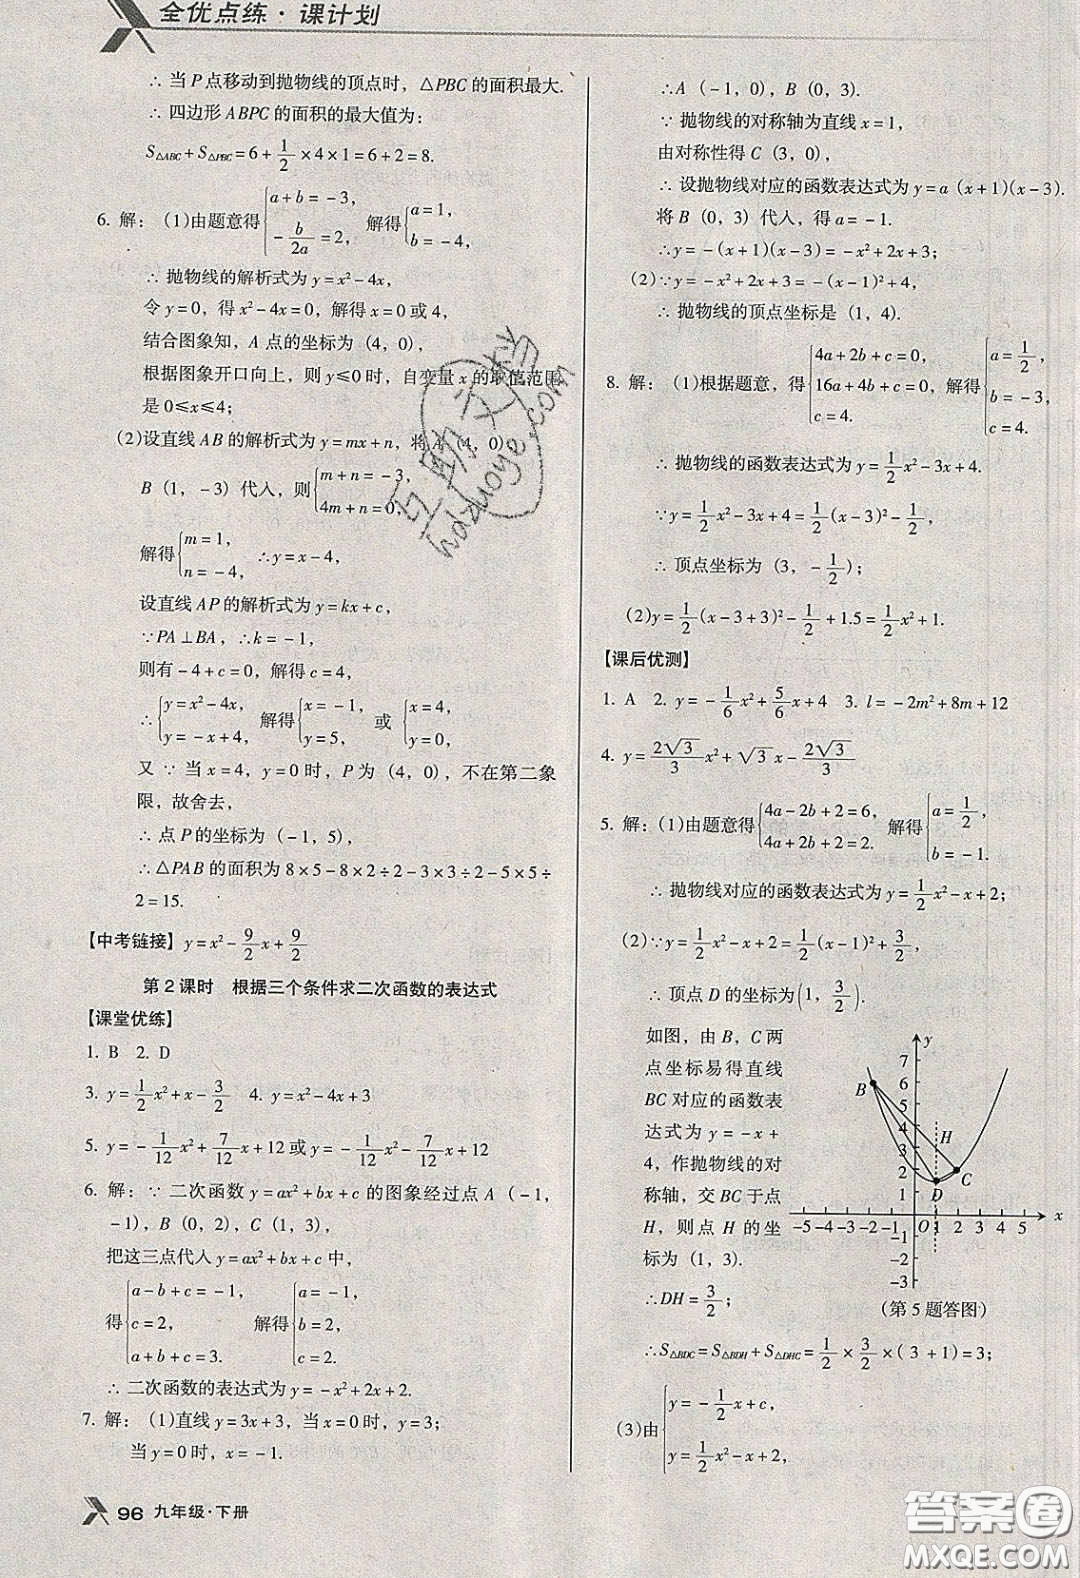 全优点练·课计划
∴ 当 P 点移动到抛物线的顶点时，△PBC 的面积最大.
∴ 四边形 ABPC 的面积的最大值为：
S△ABC + S△PBC = 6 + 1/2 × 4 × 1 = 6 + 2 = 8.
6. 解：(1)由题意得 { a + b = -3, -b/2a = 2, 解得 { a = 1, b = -4,
∴ 抛物线的解析式为 y = x² - 4x,
令 y = 0，得 x² - 4x = 0，解得 x = 0 或 4，
结合图象知，A 点的坐标为（4，0），
根据图象开口向上，则 y ≤ 0 时，自变量 x 的取值范围
是 0 ≤ x ≤ 4；
(2)设直线 AB 的解析式为 y = mx + n，将 A（4，0）
B（1，-3）代入，则 { m + n = -3, 4m + n = 0,
解得 { m = 1, n = -4, ∴ y = x - 4,
设直线 AP 的解析式为 y = kx + c,
∵ PA ⊥ BA，∴ k = -1,
则有 -4 + c = 0，解得 c = 4,
∴ { y = x² - 4x, y = -x + 4, 解得 { x = -1, y = 5, 或 { x = 4, y = 0,
又 ∵ 当 x = 4，y = 0 时，P 为（4，0），不在第二象
限，故舍去，
∴ 点 P 的坐标为（-1，5），
∴ △PAB 的面积为 8 × 5 - 8 × 2 ÷ 2 - 3 × 3 ÷ 2 - 5 × 5 ÷
2 = 15.
【中考链接】 y = x² - 9/2 x + 9/2
第 2 课时　根据三个条件求二次函数的表达式
【课堂优练】
1. B　2. D
3. y = 1/2 x² + x - 3/2　4. y = x² - 4x + 3
5. y = -1/12 x² + 7/12 x + 12 或 y = -1/12 x² - 7/12 x + 12
6. 解：∵ 二次函数 y = ax² + bx + c 的图象经过点 A（-1，
-1），B（0，2），C（1，3），
把这三点代入 y = ax² + bx + c 中，
得 { a - b + c = -1, c = 2, a + b + c = 3. 解得 { a = -1, b = 2, c = 2.
∴ 二次函数的表达式为 y = -x² + 2x + 2.
7. 解：(1)直线 y = 3x + 3，当 x = 0 时，y = 3；
当 y = 0 时，x = -1.
96 九年级·下册
∴ A（-1，0），B（0，3）.
∵ 抛物线的对称轴为直线 x = 1,
由对称性得 C（3，0），
∴ 设抛物线对应的函数表达式为 y = a (x + 1)(x - 3).
将 B（0，3）代入，得 a = -1.
∴ y = -(x + 1)(x - 3) = -x² + 2x + 3；
(2)∵ y = -x² + 2x + 3 = -(x - 1)² + 4,
∴ 抛物线的顶点坐标是（1，4）.
8. 解：(1)根据题意，得 { 4a + 2b + c = 0, 16a + 4b + c = 0, c = 4. 解得 { a = 1/2, b = -3, c = 4.
∴ 抛物线的函数表达式为 y = 1/2 x² - 3x + 4.
∵ y = 1/2 x² - 3x + 4 = 1/2 (x - 3)² - 1/2,
∴ 顶点坐标为（3，-1/2）；
(2) y = 1/2 (x - 3 + 3)² - 1/2 + 1.5 = 1/2 x² + 1.
【课后优测】
1. A　2. y = -1/6 x² + 5/6 x + 4　3. l = -2m² + 8m + 12
4. y = 2√3/3 x² + √3 x - 2√3/3
5. 解：(1)由题意得 { 4a - 2b + 2 = 6, 4a + 2b + 2 = 2. 解得 { a = 1/2, b = -1.
∴ 抛物线对应的函数表达式为 y = 1/2 x² - x + 2；
(2)∵ y = 1/2 x² - x + 2 = 1/2 (x - 1)² + 3/2,
∴ 顶点 D 的坐标为(1, 3/2).
如图，由 B，C 两
点坐标易得直线
BC 对应的函数表
达式为 y = -x +
4，作抛物线的对
称轴，交 BC 于点
H，则点 H 的坐
标为（1，3）.
∴ DH = 3/2；
y
7
6
5
4
3
2
1
B
H
C
D
-5 -4 -3 -2 -1 O 1 2 3 4 5 x
-1
-2
-3
(第 5 题答图)
∴ S△BDC = S△BDH + S△DHC = 1/2 × 3/2 × (3 + 1) = 3；
(3)由 { y = -1/2 x + c, y = 1/2 x² - x + 2,
互助文档
hdzuoye.com
答案圈
MXQE.COM